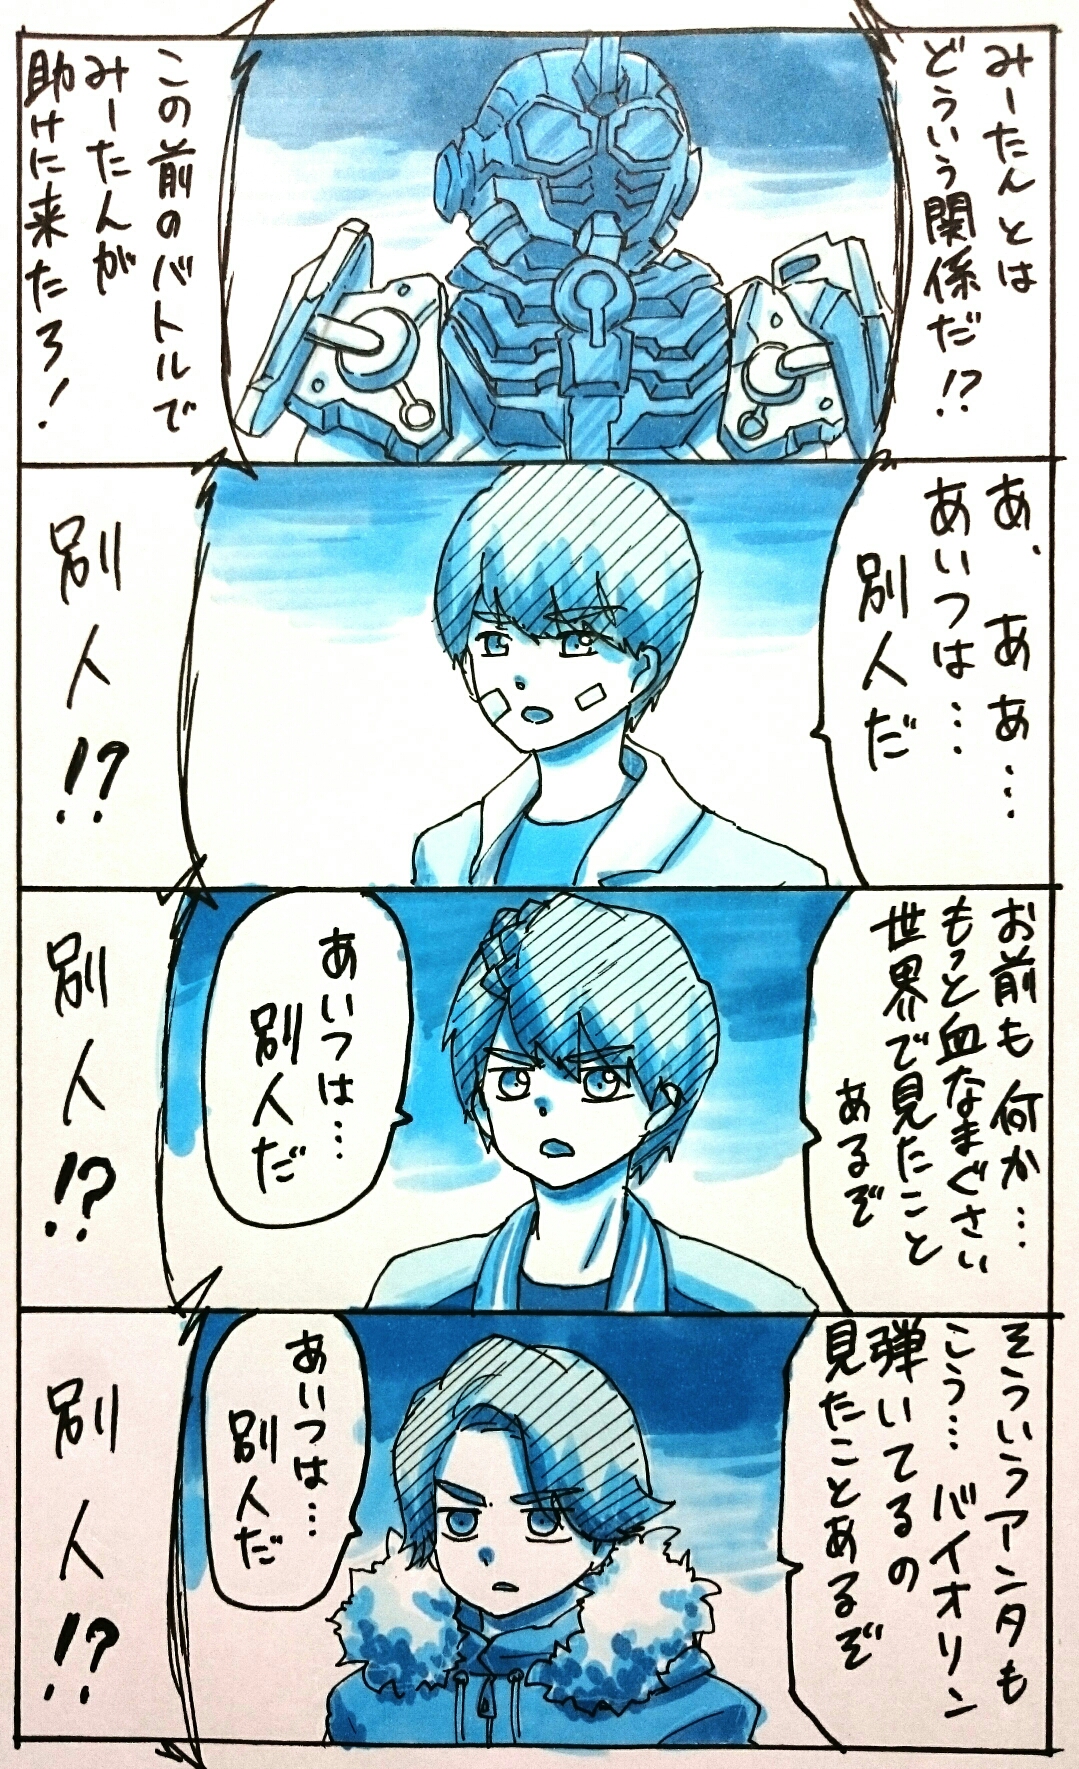 みーたんとは
どういう関係だ!?
この前のバトルで
みーたんが
助けに来たろ!
あ、ああ…
あいつは…
別人だ
別人!?
お前も何か…
もっと血なまぐさい
世界で見たこと
あるぞ
あいつは…
別人だ
別人!?
そういうアンタも
こう…バイオリン
弾いてるの
見たことあるぞ
あいつは…
別人だ
別人!?